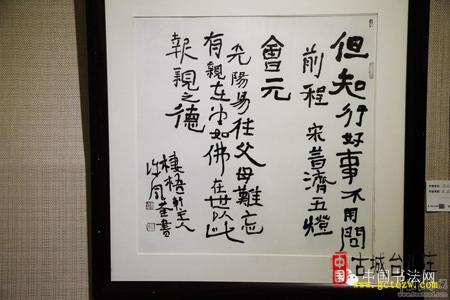 但知行好事不用問
前程 宋普濟五燈
會元
光陽易往父母難忘
有親在堂如佛在世以此
報親之德
棲梧軒主人
古城台儿庄
中国书法网
www.gctezw.com